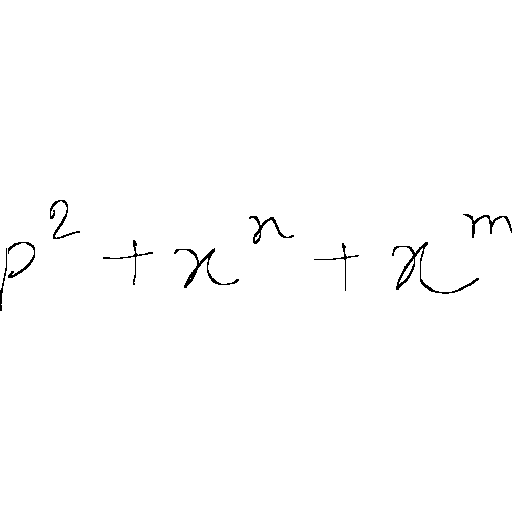 p² + xⁿ + xᵐ